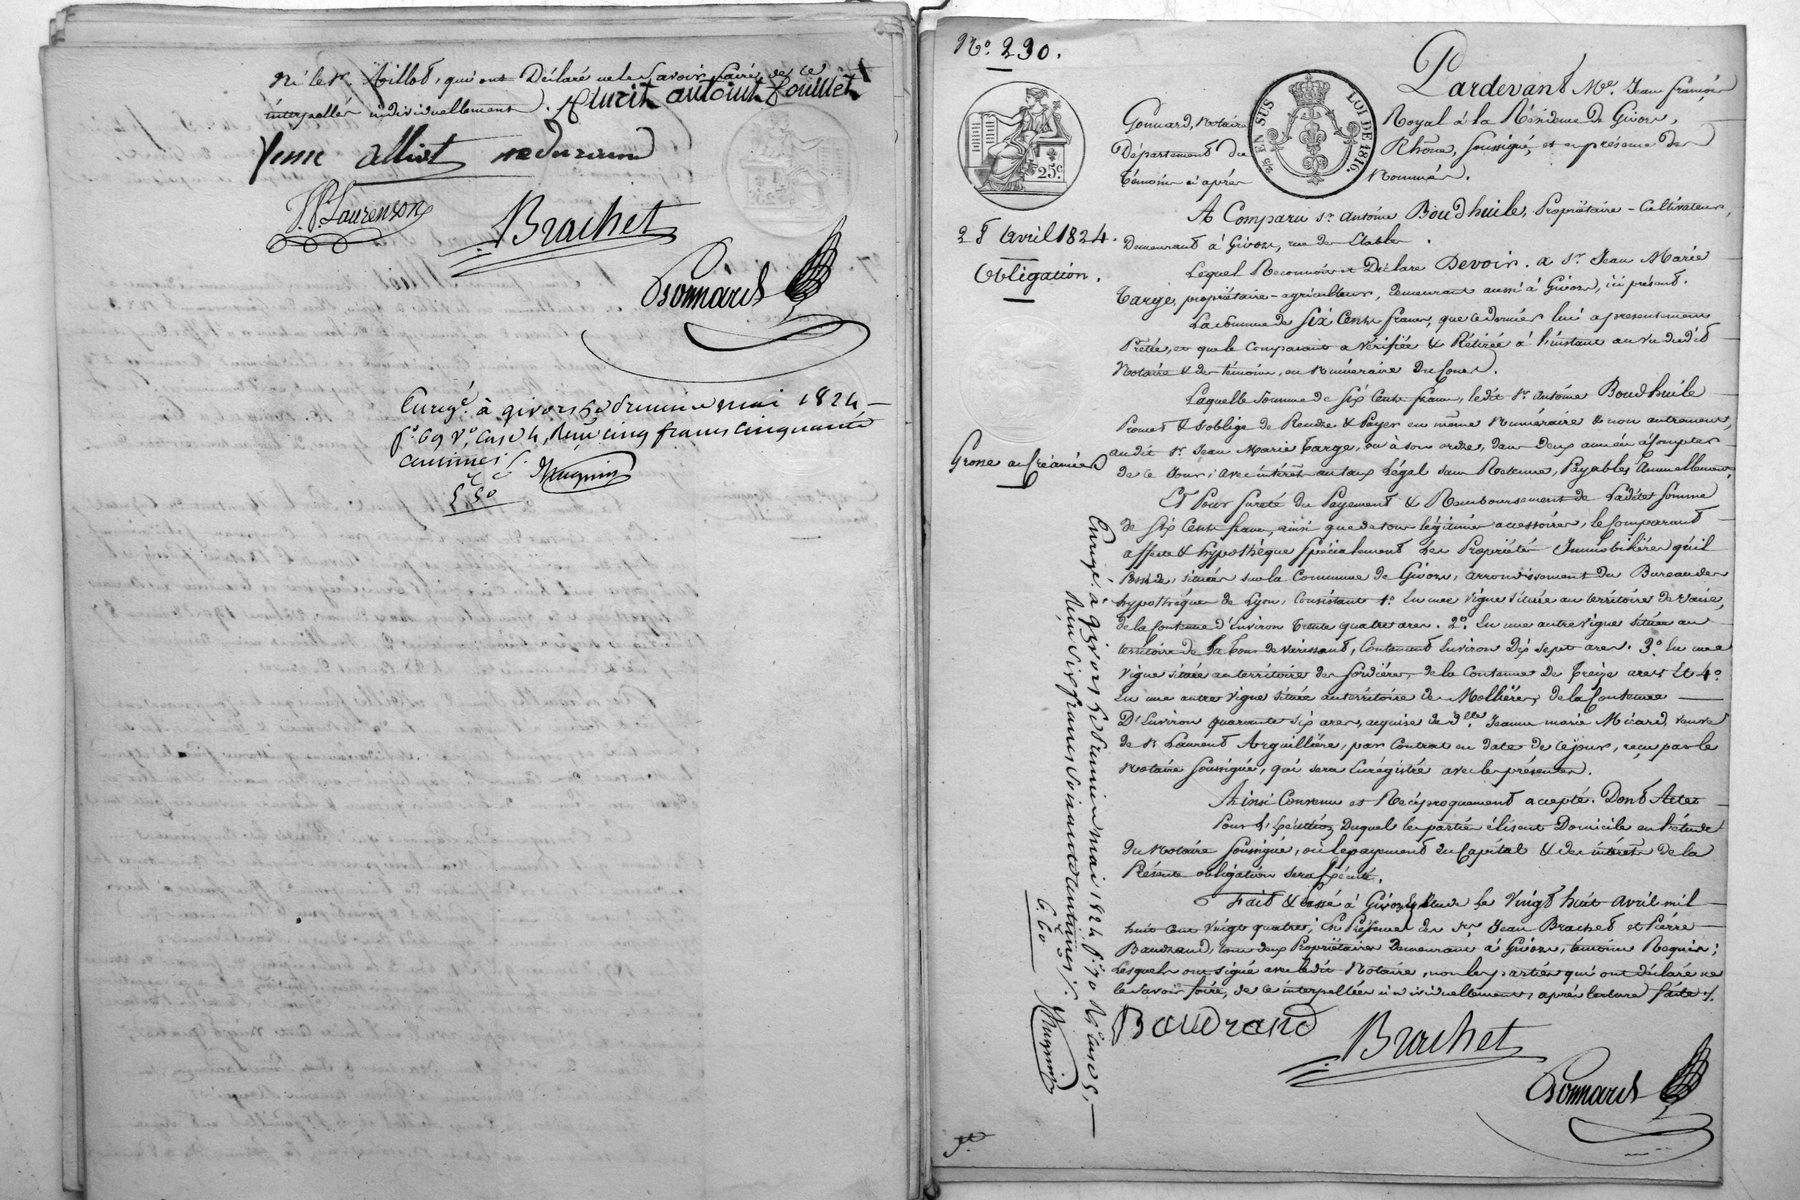 ni le Sr. Milliot, qui ont Déclaré ne le Savoir faire, de ce
interpellés individuellement.
antoine Pouillet
alliot
JP. Laurenson
Brachet
Gonnard
Enregé. à givors le premier mai 1824
fo. 69 Vo. Case 4, Reçu cinq francs cinquante
centimes
5 50
No. 290.
25 c
EN SUS
LOI DE 1816.
28 avril 1824.
Obligation.
Grosse au Créancier
Pardevant Me. Jean françois
Gonnard, Notaire Royal à la Résidence de Givors,
Département du Rhône, soussigné, et en présence des
témoins ci après Nommés.
A Comparu sr. antoine Boudhuile, Propriétaire - Cultivateur,
Demeurant à Givors, rue des Etables.
Lequel Reconnoit et Déclare Devoir à sr. Jean Marie
Targe, propriétaire - agriculteur, demeurant aussi à Givors, ici présent.
La somme de Six Cents francs, que ce dernier lui a présentement
Prêtée, et que le Comparant a vérifiée & Retirée à l'instant au vu dudit
Notaire & des témoins, en Numéraire du Cours.
Laquelle Somme de Six Cents francs, ledit sr. Antoine Boudhuile
Promet & s'oblige de Rendre & Payer en même Numéraire & non autrement,
audit sr. Jean Marie Targe, ou à son ordre, dans Deux années à Compter
de ce Jour; avec intérêt au taux légal sans Retenue, Payables annuellement.
Et Pour Sureté du Payement & Remboursement de Ladite somme
de Six Cents francs, ainsi que de tous légitimes accessoires, le Comparant
affecte & hypothèque Spécialement les Propriétés Immobilières qu'il
Possède, situées sur la Commune de Givors, arrondissement du Bureau des
hypothèques de Lyon, Consistant 1o. En une Vigne située au territoire de
de la Contenue d'Environ trente quatre ares. 2o. En une autre vigne située au
territoire de La Tour de Varissant, Contenant Environ Dix sept ares. 3o. En une
Vigne située au territoire des de la Contenue De treize ares Et 4o.
En une autre vigne située au territoire de de la Contenue
D'Environ quarante Six ares, acquise de dlle. Jeanne marie Micard, veuve
de sr Laurent Arquillière, par Contrat en date de ce jour, reçu par le
Notaire soussigné, qui sera Enregistré avec le présent.
Ainsi Convenu et Réciproquement accepté. Dont Acte
Pour l' Duquel les parties élisent Domicile en l'étude
du Notaire soussigné, où le payement du Capital & des intérêts de la
Présente obligation sera
Fait & Passé à Givors, Etude Le Vingt huit avril mil
huit Cent Vingt quatre; En Présence des srs. Jean Brachet et Pierre
Baudrand, tous deux Propriétaires Demeurant à Givors, témoins Requis;
Lesquels ont signé avec ledit Notaire, non les parties qui ont déclaré ne
le savoir faire, de ce interpellées individuellement, après lecture faite./.
Baudrand
Brachet
Gonnard
Enregé. à givors le premier mai 1824 fo. 70 Ro. case 5,
Reçu six francs soixante centimes
6 60